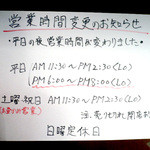 営業時間変更のお知らせ
・平日の夜営業時間が変わりました・
平日 AM11:30〜PM2:30(LO)
PM6:00〜PM8:00(LO)
土曜・祝日 AM11:30〜PM2:30(LO)
注、売り切れ閉店
日曜定休日